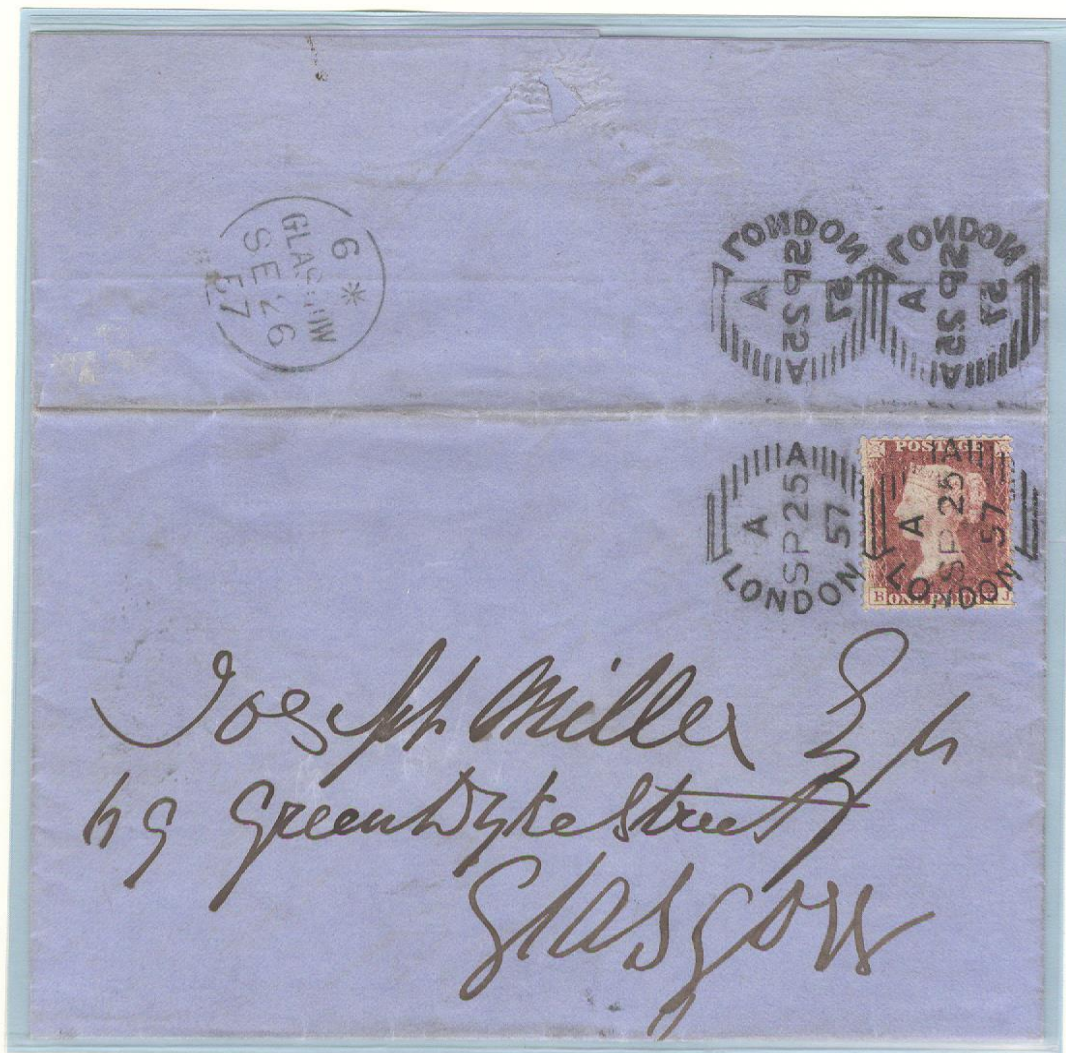 6 *
GLASGOW
SE 26
57
LONDON
A
SP 25
57
A
LONDON
A
SP 25
57
A
A
A
SP 25
57
LONDON
POSTAGE
A
A
SP 25
57
LONDON
B ONE PENNY J
Joseph Miller Esq
69 Green Dyke Street
Glasgow